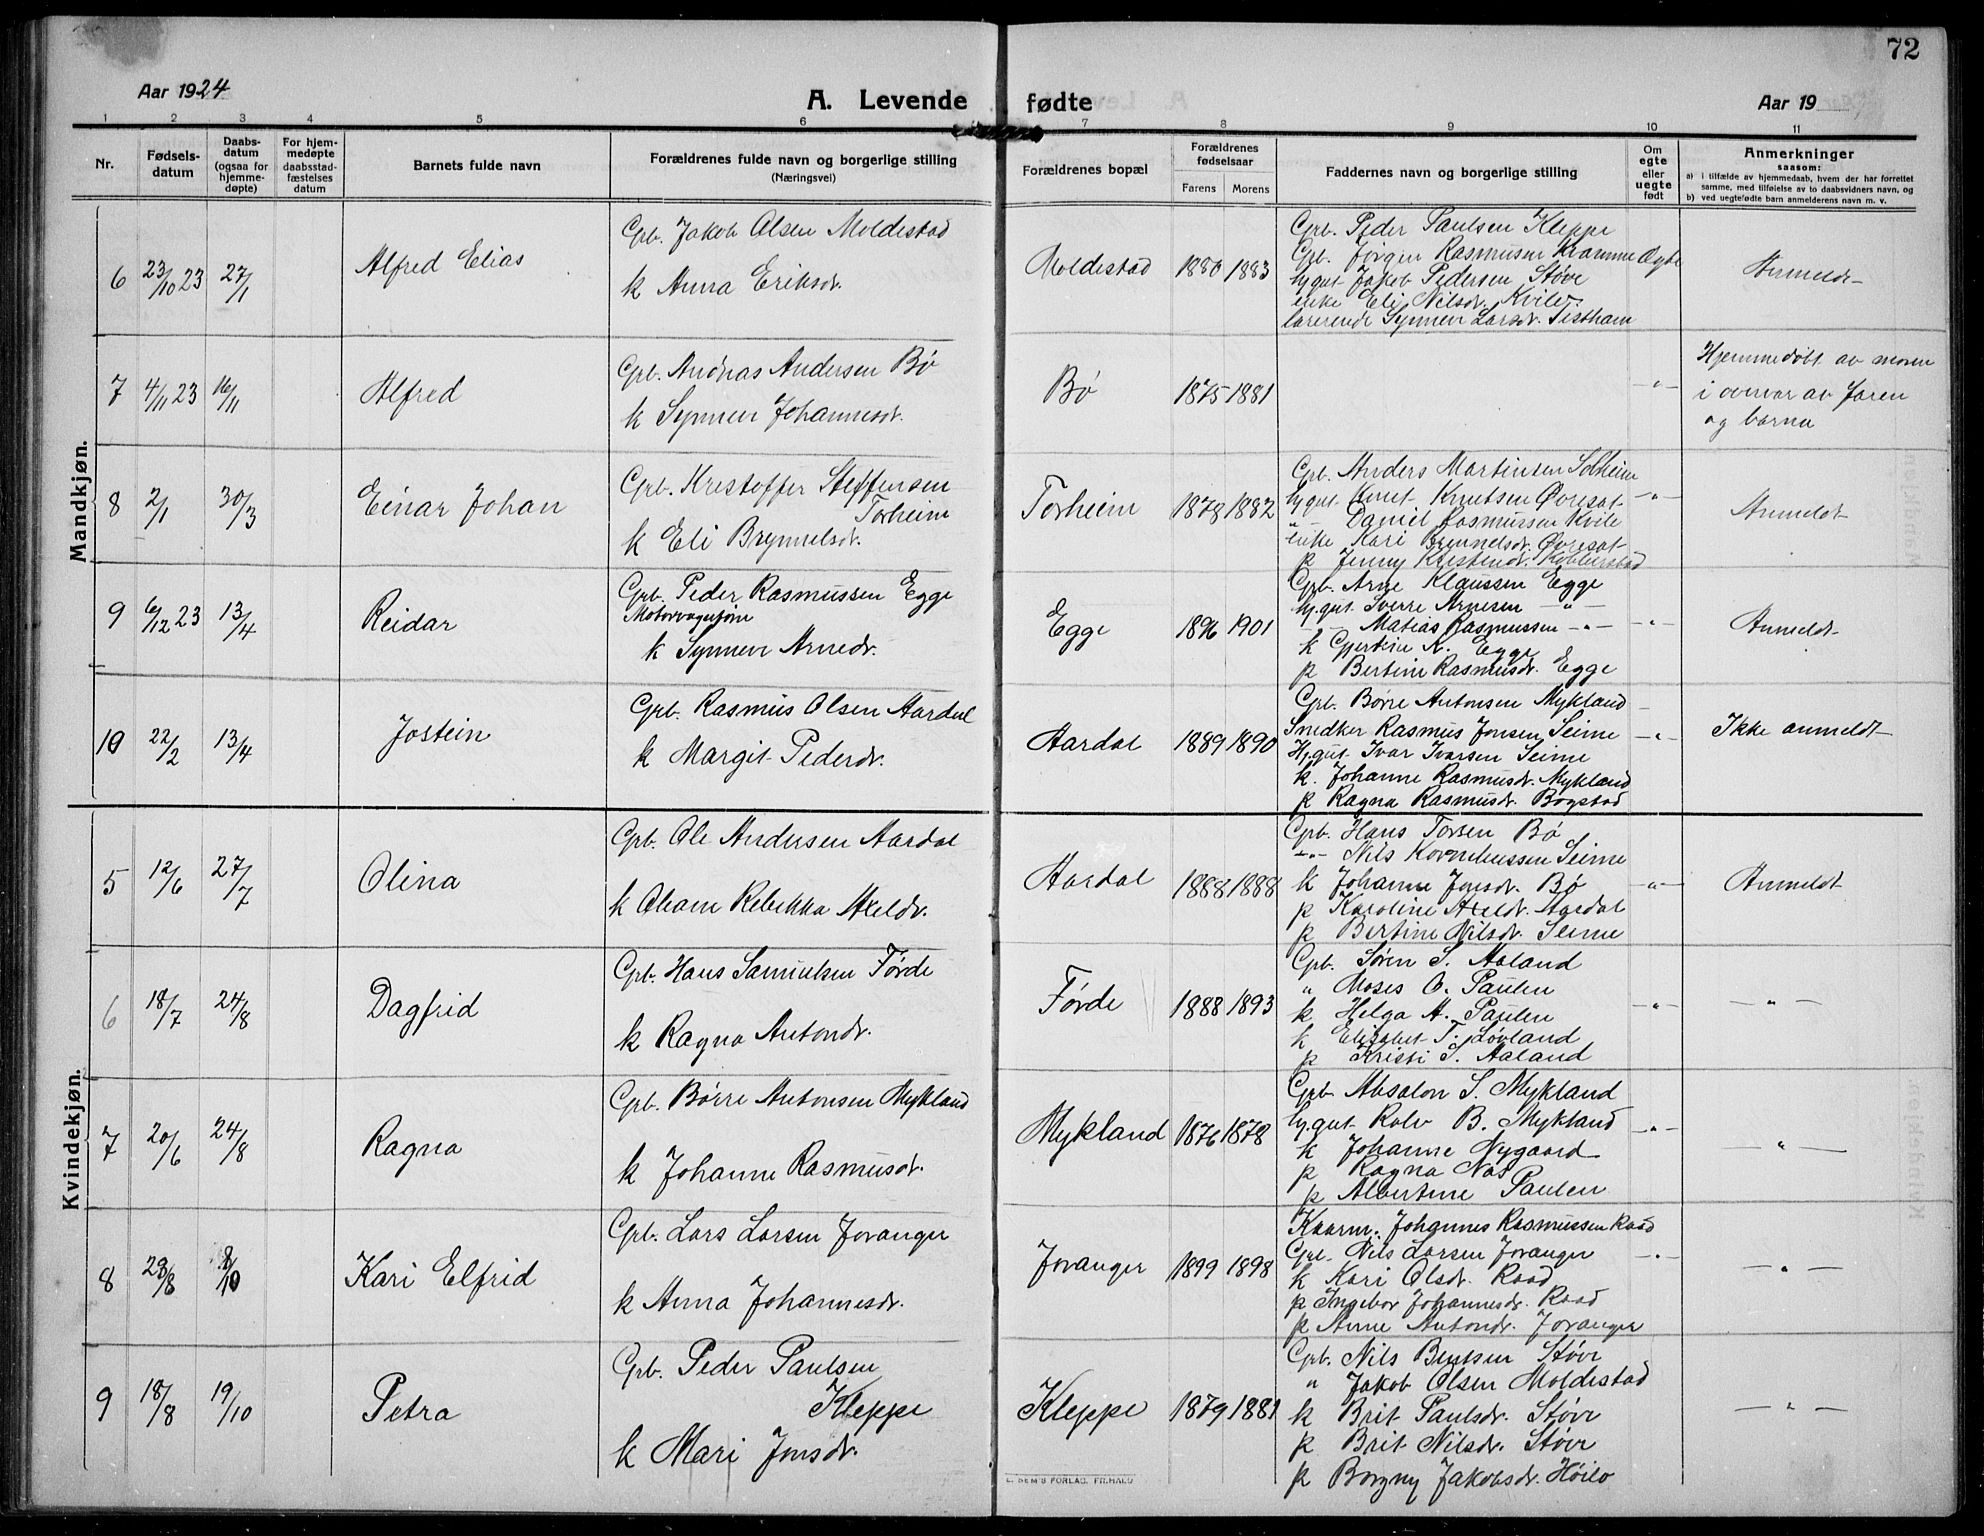 72
Aar 1924
A. Levende fødte
Aar 19
1 2 3 4 5 6 7 8 9 10 11
Nr.
Fødsels-
datum
Daabs-
datum
(ogsaa for
hjemme-
døpte)
For hjem-
medøpte
daabsstad-
fæstelses
datum
Barnets fulde navn
Forældrenes fulde navn og borgerlige stilling
(Næringsvei)
Forældrenes bopæl
Forældrenes
fødselsaar
Farens Morens
Faddernes navn og borgerlige stilling
Om
egte
eller
uegte
født
Anmerkninger
saasom:
a) i tilfælde av hjemmedaab, hvem der har forrettet
samme, med tilføielse av to daabsvidners navn, og
b) ved uegtefødte barn anmelderens navn m. v.
Mandkjøn.
6 23/10 23 27/1 Alfred Elias
Grb. Jakob Olsen Moldestad
k Anna Eriksdr.
Moldestad 1880 1883
Grb. Peder Paulsen Kleppe
Grb. Jørgen Rasmussen Kvamme
Uggut Jakob Pedersen Støve
enke Eli Nilsdr. Kvile
lærerende Synneve Larsdr. Tistham
Egte
Anmeldt
7 4/11 23 16/11 Alfred
Grb. Andreas Andersen Bø
k Synneve Johannesdr.
Bø 1875 1881
- " -
Hjemmedøbt av moren
i overvar av faren
og barna
8 2/1 30/3 Einar Johan
Grb. Kristoffer Steffensen
Torheim
k Eli Brynnelsdr.
Torheim 1878 1882
Grb. Anders Martinsen Solheim
Uggut Knut Knutsen Øvreset
- " - Daniel Rasmussen Kvile
enke Kari Brynnelsdr. Øvreset
p Jenny Kristendr. Kobberstad
- " -
Anmeldt
9 6/12 23 13/4 Reidar
Grb. Peder Rasmussen Egge
Motorvognfører
k Synneve Arnedr.
Egge 1896 1901
Grb. Arne Klaussen Egge
Ug.gut Sverre Arnesen - " -
- " - Matias Rasmussen - " -
k Gjertine A. Egge
p Bertine Rasmusdr. Egge
- " -
Anmeldt
10 22/2 13/4 Jostein
Grb. Rasmus Olsen Aardal
k Margit Pederdr.
Aardal 1889 1890
Grb. Børre Antonsen Mykland
Snedker Rasmus Jonsen Seime
Ug.gut Ivar Ivarsen Seime
k. Johanne Rasmusdr. Mykland
p Ragna Rasmusdr. Bogstad
- " -
Ikke anmeldt
Kvindekjøn.
5 12/6 27/7 Olina
Grb. Ole Andersen Aardal
k Oliane Rebekka Axeldr.
Aardal 1888 1888
Grb. Hans Torsen Bø
- " - Nils Kornelius­sen Seime
k Johanne Jonsdr. Bø
p Karoline Axeldr. Aardal
p Bertine Nilsdr. Seime
- " -
Anmeldt
6 18/7 24/8 Dagfrid
Grb. Hans Samuelsen Førde
k Ragna Antondr.
Førde 1888 1893
Grb. Søren S. Aaland
" Moses O. Paulen
k Helga A. Paulen
k Elisabet T. Løvland
p Kristi S. Aaland
- " -
- " -
7 20/6 24/8 Ragna
Grb. Børre Antonsen Mykland
k Johanne Rasmusdr.
Mykland 1876 1878
Grb Absalon S. Mykland
Ug.gut Rolv B. Mykland
k Johanne Nygaard
p Ragna Nås
p Albertine Paulen
- " -
- " -
8 28/8 8/10 Kari Elfrid
Grb. Lars Larsen Joranger
k Anna Johannesdr.
Joranger 1899 1898
Kaarm. Johannes Rasmussen Raad
Grb. Nils Larsen Joranger
k Kari Olsdr. Raad
p Ingebor Johannesdr. Raad
p Anne Antondr. Joranger
- " -
- " -
9 18/8 19/10 Petra
Grb. Peder Paulsen
Kleppe
k Mari Jonsdr.
Kleppe 1879 1881
Grb. Nils Bentsen Støve
" Jakob Olsen Moldestad
k Brit Paulsdr. Støve
p Brit Nilsdr. Støve
p Borgny Jakobsdr. Høilo
- " -
E. SEM'S FORLAG, FR.HALD